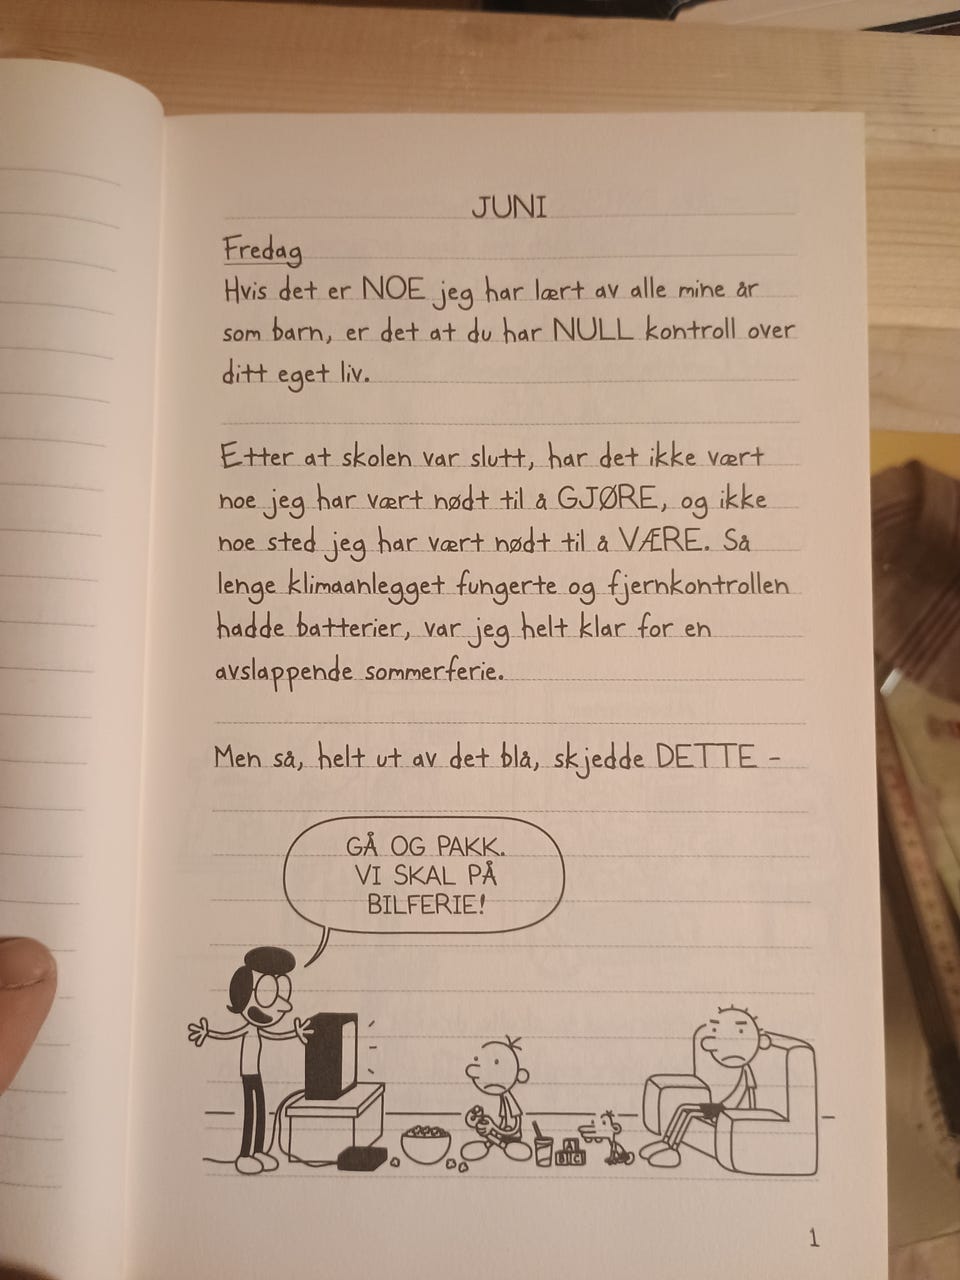 JUNI
Fredag
Hvis det er NOE jeg har lært av alle mine år
som barn, er det at du har NULL kontroll over
ditt eget liv.
Etter at skolen var slutt, har det ikke vært
noe jeg har vært nødt til å GJØRE, og ikke
noe sted jeg har vært nødt til å VÆRE. Så
lenge klimaanlegget fungerte og fjernkontrollen
hadde batterier, var jeg helt klar for en
avslappende sommerferie.
Men så, helt ut av det blå, skjedde DETTE –
GÅ OG PAKK.
VI SKAL PÅ
BILFERIE!
A
B C
1